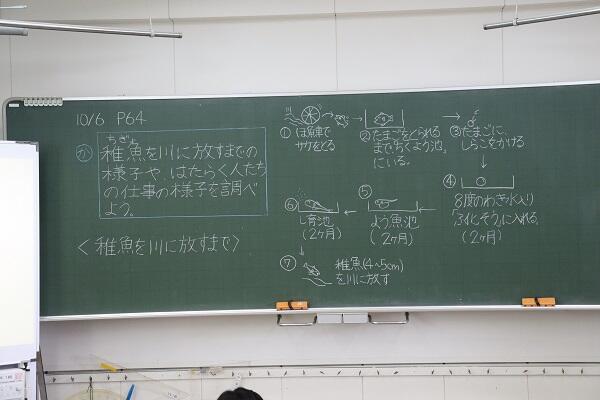 10/6 P64
か
ちぎょ
稚魚を川に放すまでの
様子や、はたらく人たち
の仕事の様子を調べ
よう。
<稚魚を川に放すまで>
① ほ魚車で
サケをとる
② たまごをとられる
までちくよう池
にいる。
③ たまごに、
しらこをかける
④
8度のわき水入り
「ふ化そう」に入れる。
(2ヶ月)
⑤
よう魚池
(2ヶ月)
⑥
し育池
(2ヶ月)
⑦ 稚魚(4~5cm)
を川に放す